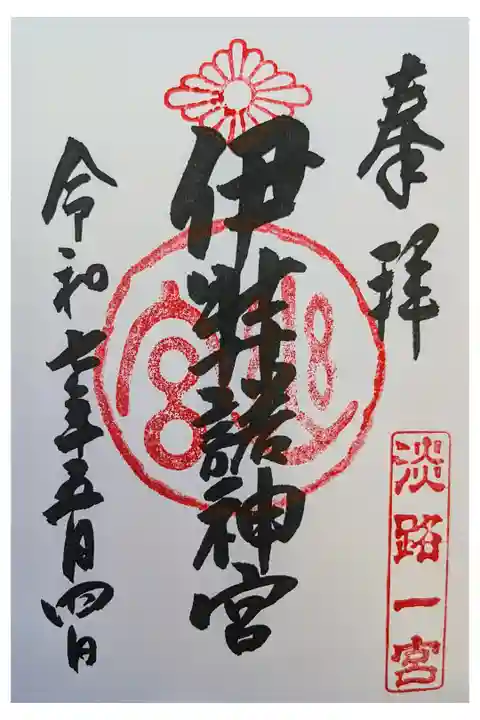 奉拝
淡路一宮
伊弉諾神宮
令和七年五月四日